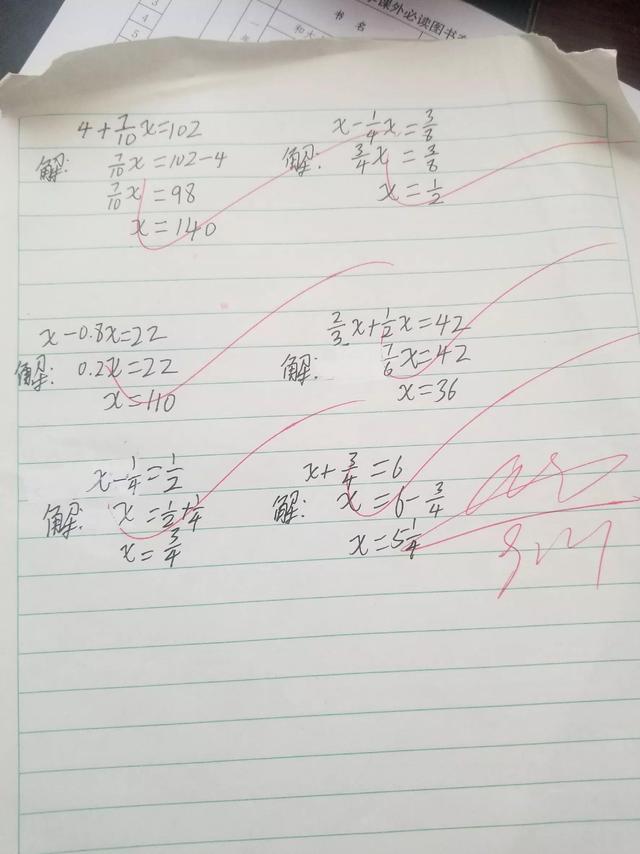 学课外必读图书
书 名
一
3
4
5
4+7/10x=102
解: 7/10x=102-4
7/10x=98
x=140
x-1/4x=3/8
解: 3/4x=3/8
x=1/2
x-0.8x=22
解: 0.2x=22
x=110
2/3x+1/2x=42
解: 7/6x=42
x=36
x-1/4=1/2
解: x=1/2+1/4
x=3/4
x+3/4=6
解: x=6-3/4
x=5 1/4